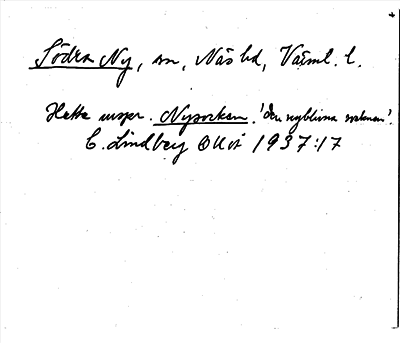 Södra Ny, sn, Näs hd, Värml. l.
Hette urspr. Nysocken. 'den nyblivna socknen'.
C. Lindberg OUÅ 1937:17